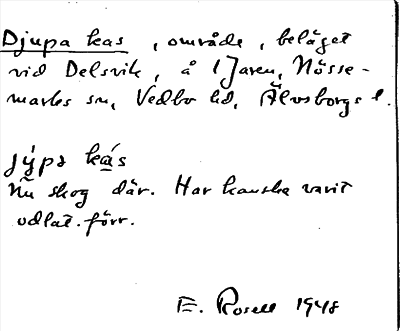 Djupa kas, område, beläget
vid Delsvik, å 1 Jaren, Nösse-
marks sn, Vedbo hd, Älvsborgs l.
jýpa ka̲s
Nu skog där. Har kanske varit
odlat. förr.
E. Rosell 1948